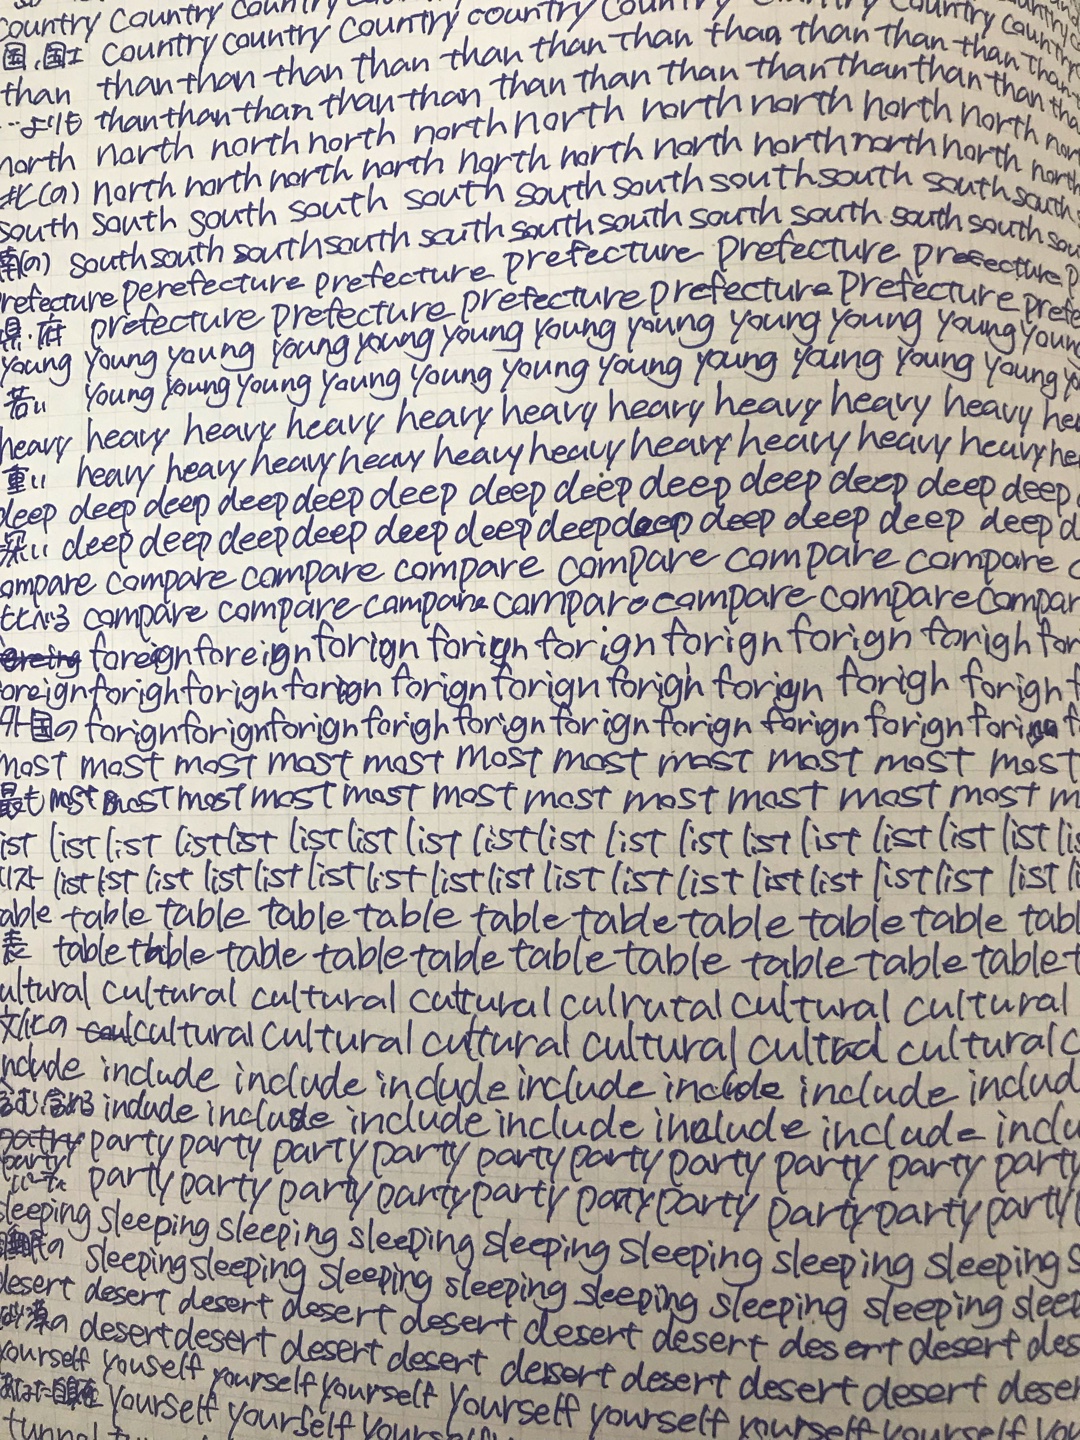 country country country country country country country country
国,国土 country country country country country country country country country
than than than than than than than than than than than than
…よりも than than than than than than than than than than than than than
north north north north north north north north north north north
北(の) north north north north north north north north north north north
south south south south south south south south south south
南(の) south south south south south south south south south south south
prefecture perefecture prefecture prefecture prefecture prefecture
県.府 prefecture prefecture prefecture prefecture prefecture
young young young young young young young young young young young
若い young young young young young young young young young young young
heavy heavy heavy heavy heavy heavy heavy heavy heavy
重い heavy heavy heavy heavy heavy heavy heavy heavy heavy heavy
deep deep deep deep deep deep deep deep deep deep deep deep
深い deep deep deep deep deep deep deep deep deep deep deep deep
ompare compare compare compare compare compare compare
比べる compare compare compare compare compare compare compar
foreign foreign forign forign forign forign forign forigh for
oreign forigh forign forign forign forign forigh forign forigh forign
外国の forign forign forign forigh forign forign forign forign forign
most most most most most most most most most most
最も most most most most most most most most most most
ist list list list list list list list list list list list list list list list
リスト list list list list list list list list list list list list list list list
able table table table table table table table table table
表 table table table table table table table table table
ultural cultural cultural cultural culrutal cultural cultural
文化の cultural cultural cultural cultural cultural cultural
nclude include include include include include include includ
含む,含める include include include include include include
party party party party party party party party party
party パーティ party party party party party party party party party
sleeping sleeping sleeping sleeping sleeping sleeping sleeping sleeping
睡眠の sleeping sleeping sleeping sleeping sleeping sleeping sleeping
desert desert desert desert desert desert desert desert desert
砂漠の desert desert desert desert desert desert desert desert
yourself youself yourself yourself yourself yourself yourself yourself
あなた自身 yourself yourself yourself
tunnel